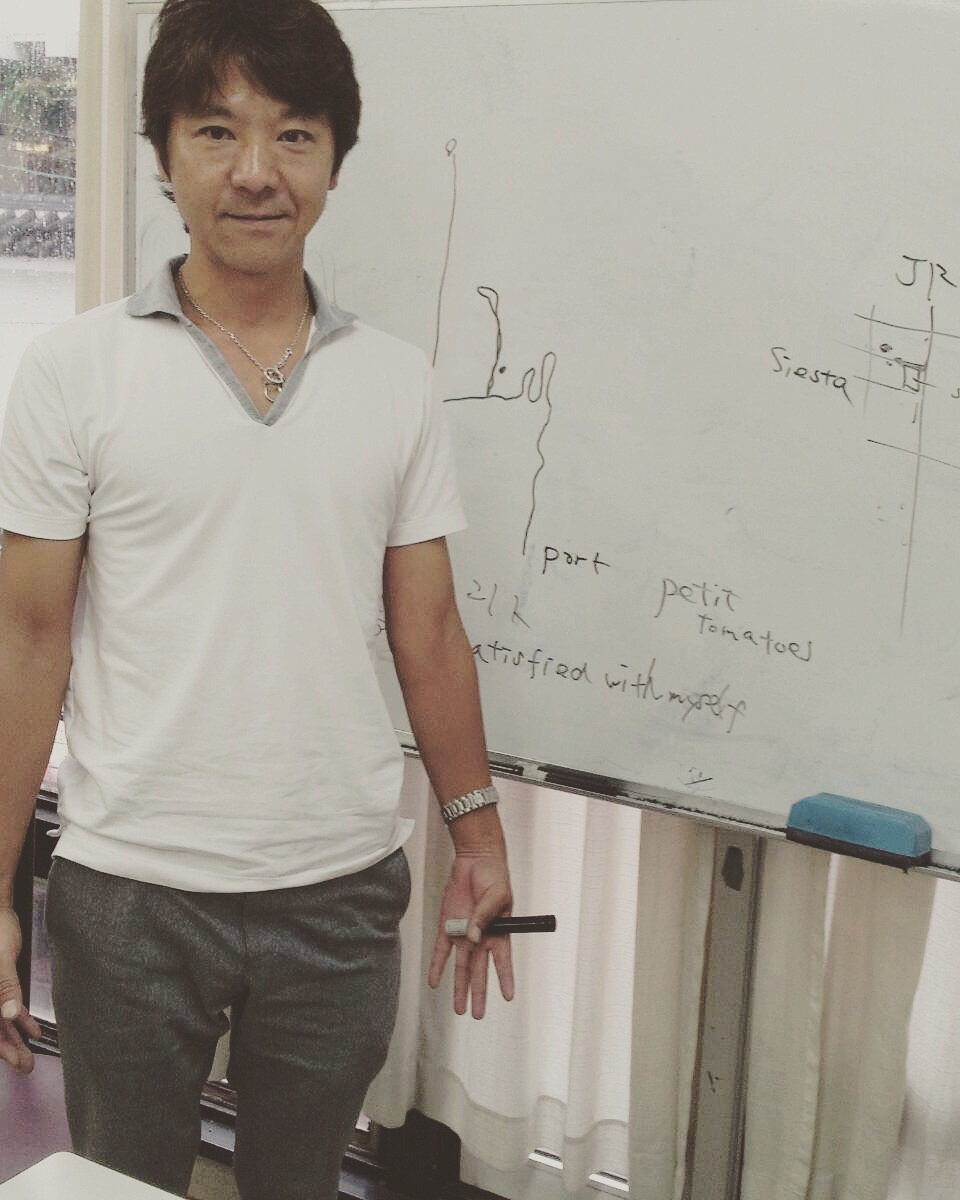 JR
Siesta
part
petit
tomatoes
atisfied with myself